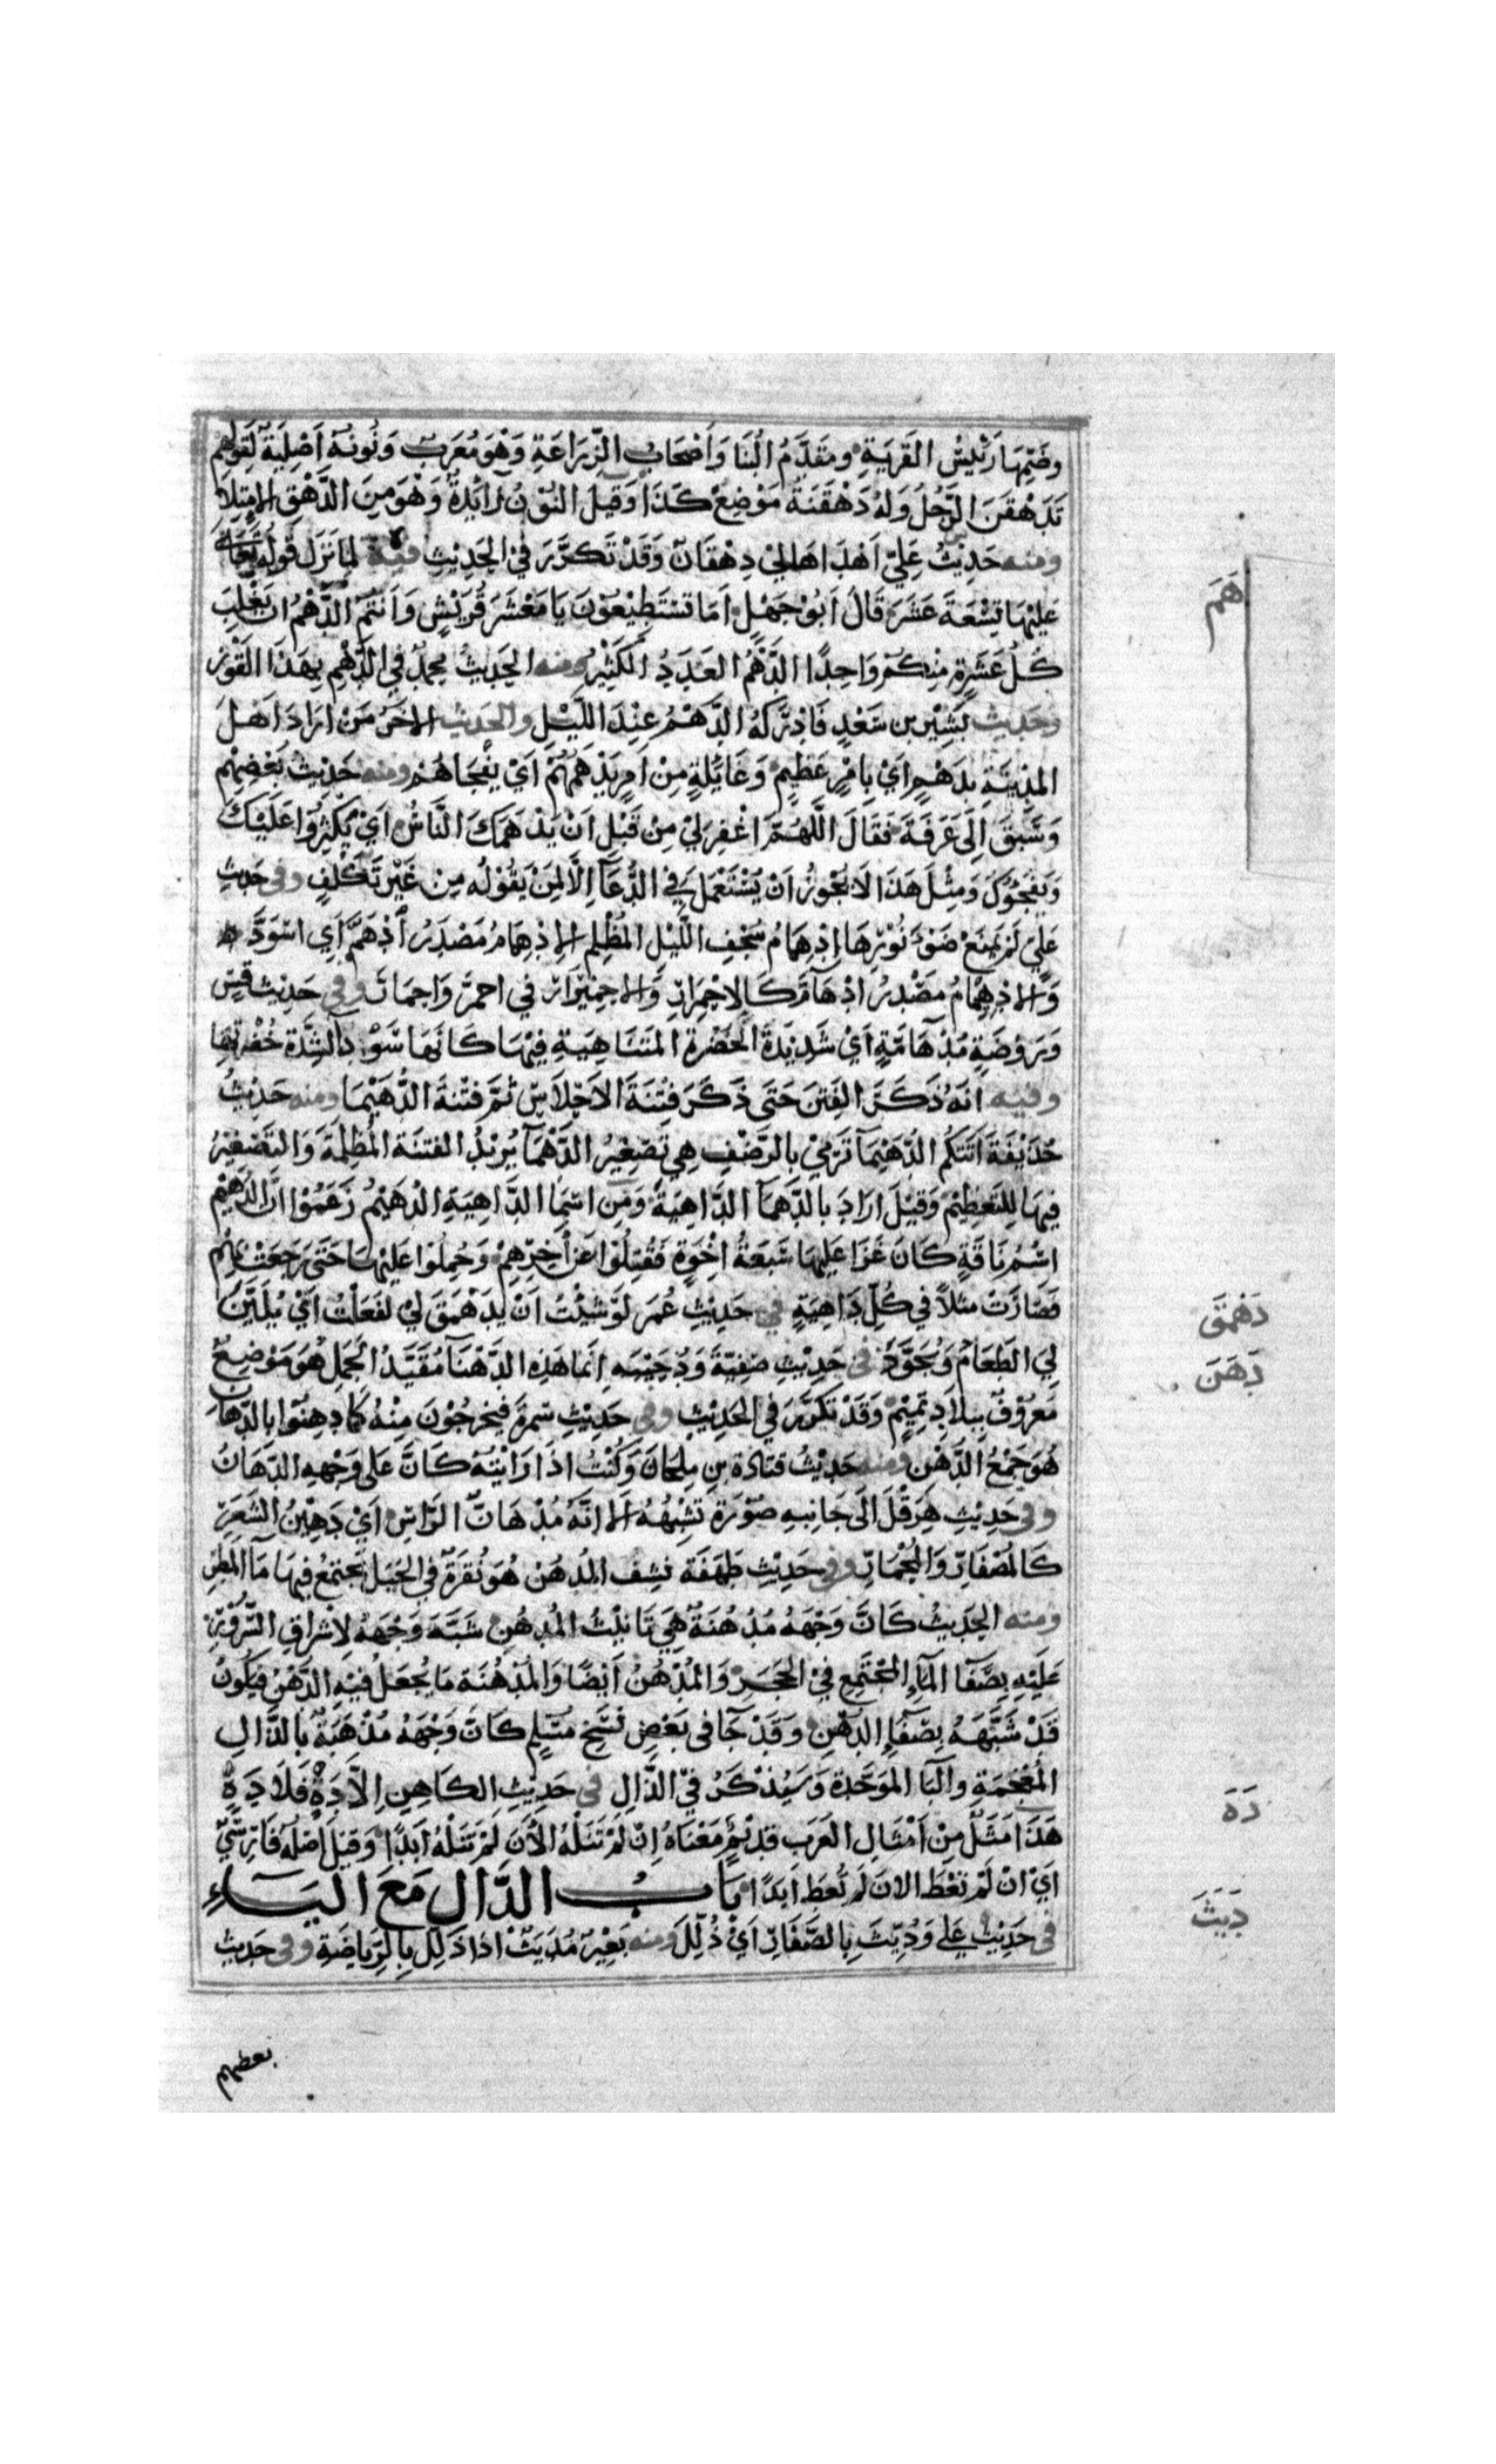 وضمها رئيس القرية ومقدم البنا واصحاب الزراعة وهو معرب ونونه اصلية لقولهم
تدهقن الرجل وله دهقنة موضع كذا وقيل النون زايدة وهو من الدهق الامتلا
ومنه حديث علي اهداها الي دهقان وقد تكرر في الحديث فيه لما نزل قوله تعالى
عليها تسعة عشر قال ابو جهل اما تستطيعون يا معشر قريش وانتم الدهم ان يغلب
كل عشرة منكم واحدا الدهم العدد الكثير ومنه الحديث محمد في الدهم بهذا القوز
وحديث بشير بن سعد فادركه الدهم عند الليل والحديث الاخر من اراد اهل
المدينة بدهم اي بامر عظيم وغايلة من امر يدهمهم اي يفجاهم ومنه حديث بعضهم
وسبق الى عرفة فقال اللهم اغفر لي من قبل ان يدهمك الناس اي يكثروا عليك
ويفجوك ومثل هذا لا يجوز ان يستعمل في الدعا الا لمن يقوله من غير تكلف وفي حديث
علي لم يمنع ضوء نورها ادهمام سجف الليل المظلم الادهمام مصدر ادهم اي اسود
والادهيمام مصدر ادهام كالاحمرار والاحميرار في احمر واحمار وفي حديث قس
وروضة مدهامة اي شديدة الخضرة المتناهية فيها كانها سود الشدة خضرتها
وفيه انه ذكر الفتن حتى ذكر فتنة الاحلاس ثم فتنة الدهيما ومنه حديث
حذيفة اتتكم الدهيما ترمي بالرضف هي تصغير الدهما يريد الفتنة المظلمة والتصغير
فيها للتعظيم وقيل اراد بالدهما الداهية ومن اسما الداهية الدهيم زعموا ان الدهيم
اسم ناقة كان غزا عليها سبعة اخوة فقتلوا عن اخرهم وحملوا عليها حتى رجعت بهم
فصارت مثلا في كل داهية في حديث عمر لو شيت ان يدهمق لي لفعلت اي يلين
لي الطعام ويجود في حديث صفية ودحيبه انما هذه الدهنا مقيد الجمل هو موضع
معروف ببلاد تميم وقد تكرر في الحديث وفي حديث سمرة فيخرجون منه كما دهنوا بالدهان
هو جمع الدهن ومنه حديث قتادة بن ملحان وكنت اذا رايته كان على وجهه الدهان
وفي حديث هرقل الى جانبه صورة تشبهه الا انه مدهان الراس اي دهين الشعر
كالمصفار والمحمار وفي حديث طهفة نشف المدهن هو نقرة في الجبل يجتمع فيها ما المطر
ومنه الحديث كان وجهه مدهنة هي تانيث المدهن شبه وجهه لاشراق السرور
عليه بصفا الماء المجتمع في الحجر والمدهن ايضا والمدهنة ما يجعل فيه الدهن فيكون
قد شبهه بصفاء الدهن وقد جا في بعض نسخ مسلم كان وجهه مذهبة بالذال
المعجمة والبا الموحدة وسيذكر في الذال في حديث الكاهن الا ده فلا ده
هذا مثل من امثال العرب قديم معناه ان لم تنله الان لم تنله ابدا وقيل اصله فارسي
اي ان لم تعط الان لم تعط ابدا باب الدال مع الياء
في حديث علي وديث بالصغار اي ذلل ومنه بعير مديث اذا ذلل بالرياضة وفي حديث
بعضهم
هم
دهمق
دهن
ده
ديث